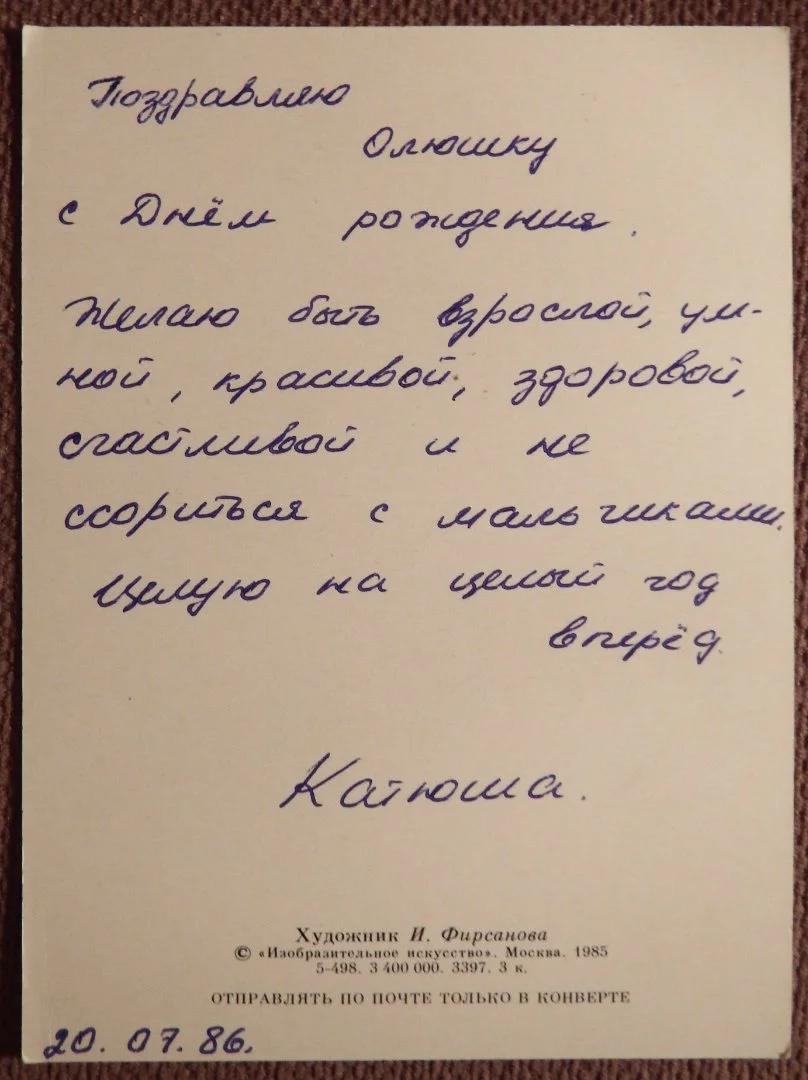 Поздравляю
Олюшку
с Днём рождения.
Желаю быть взрослой, ум-
ной, красивой, здоровой,
счастливой и не
ссориться с мальчиками.
Целую на целый год
вперёд.
Катюша.
Художник И. Фирсанова
© «Изобразительное искусство». Москва. 1985
5-498. 3 400 000. 3397. 3 к.
ОТПРАВЛЯТЬ ПО ПОЧТЕ ТОЛЬКО В КОНВЕРТЕ
20. 07. 86.